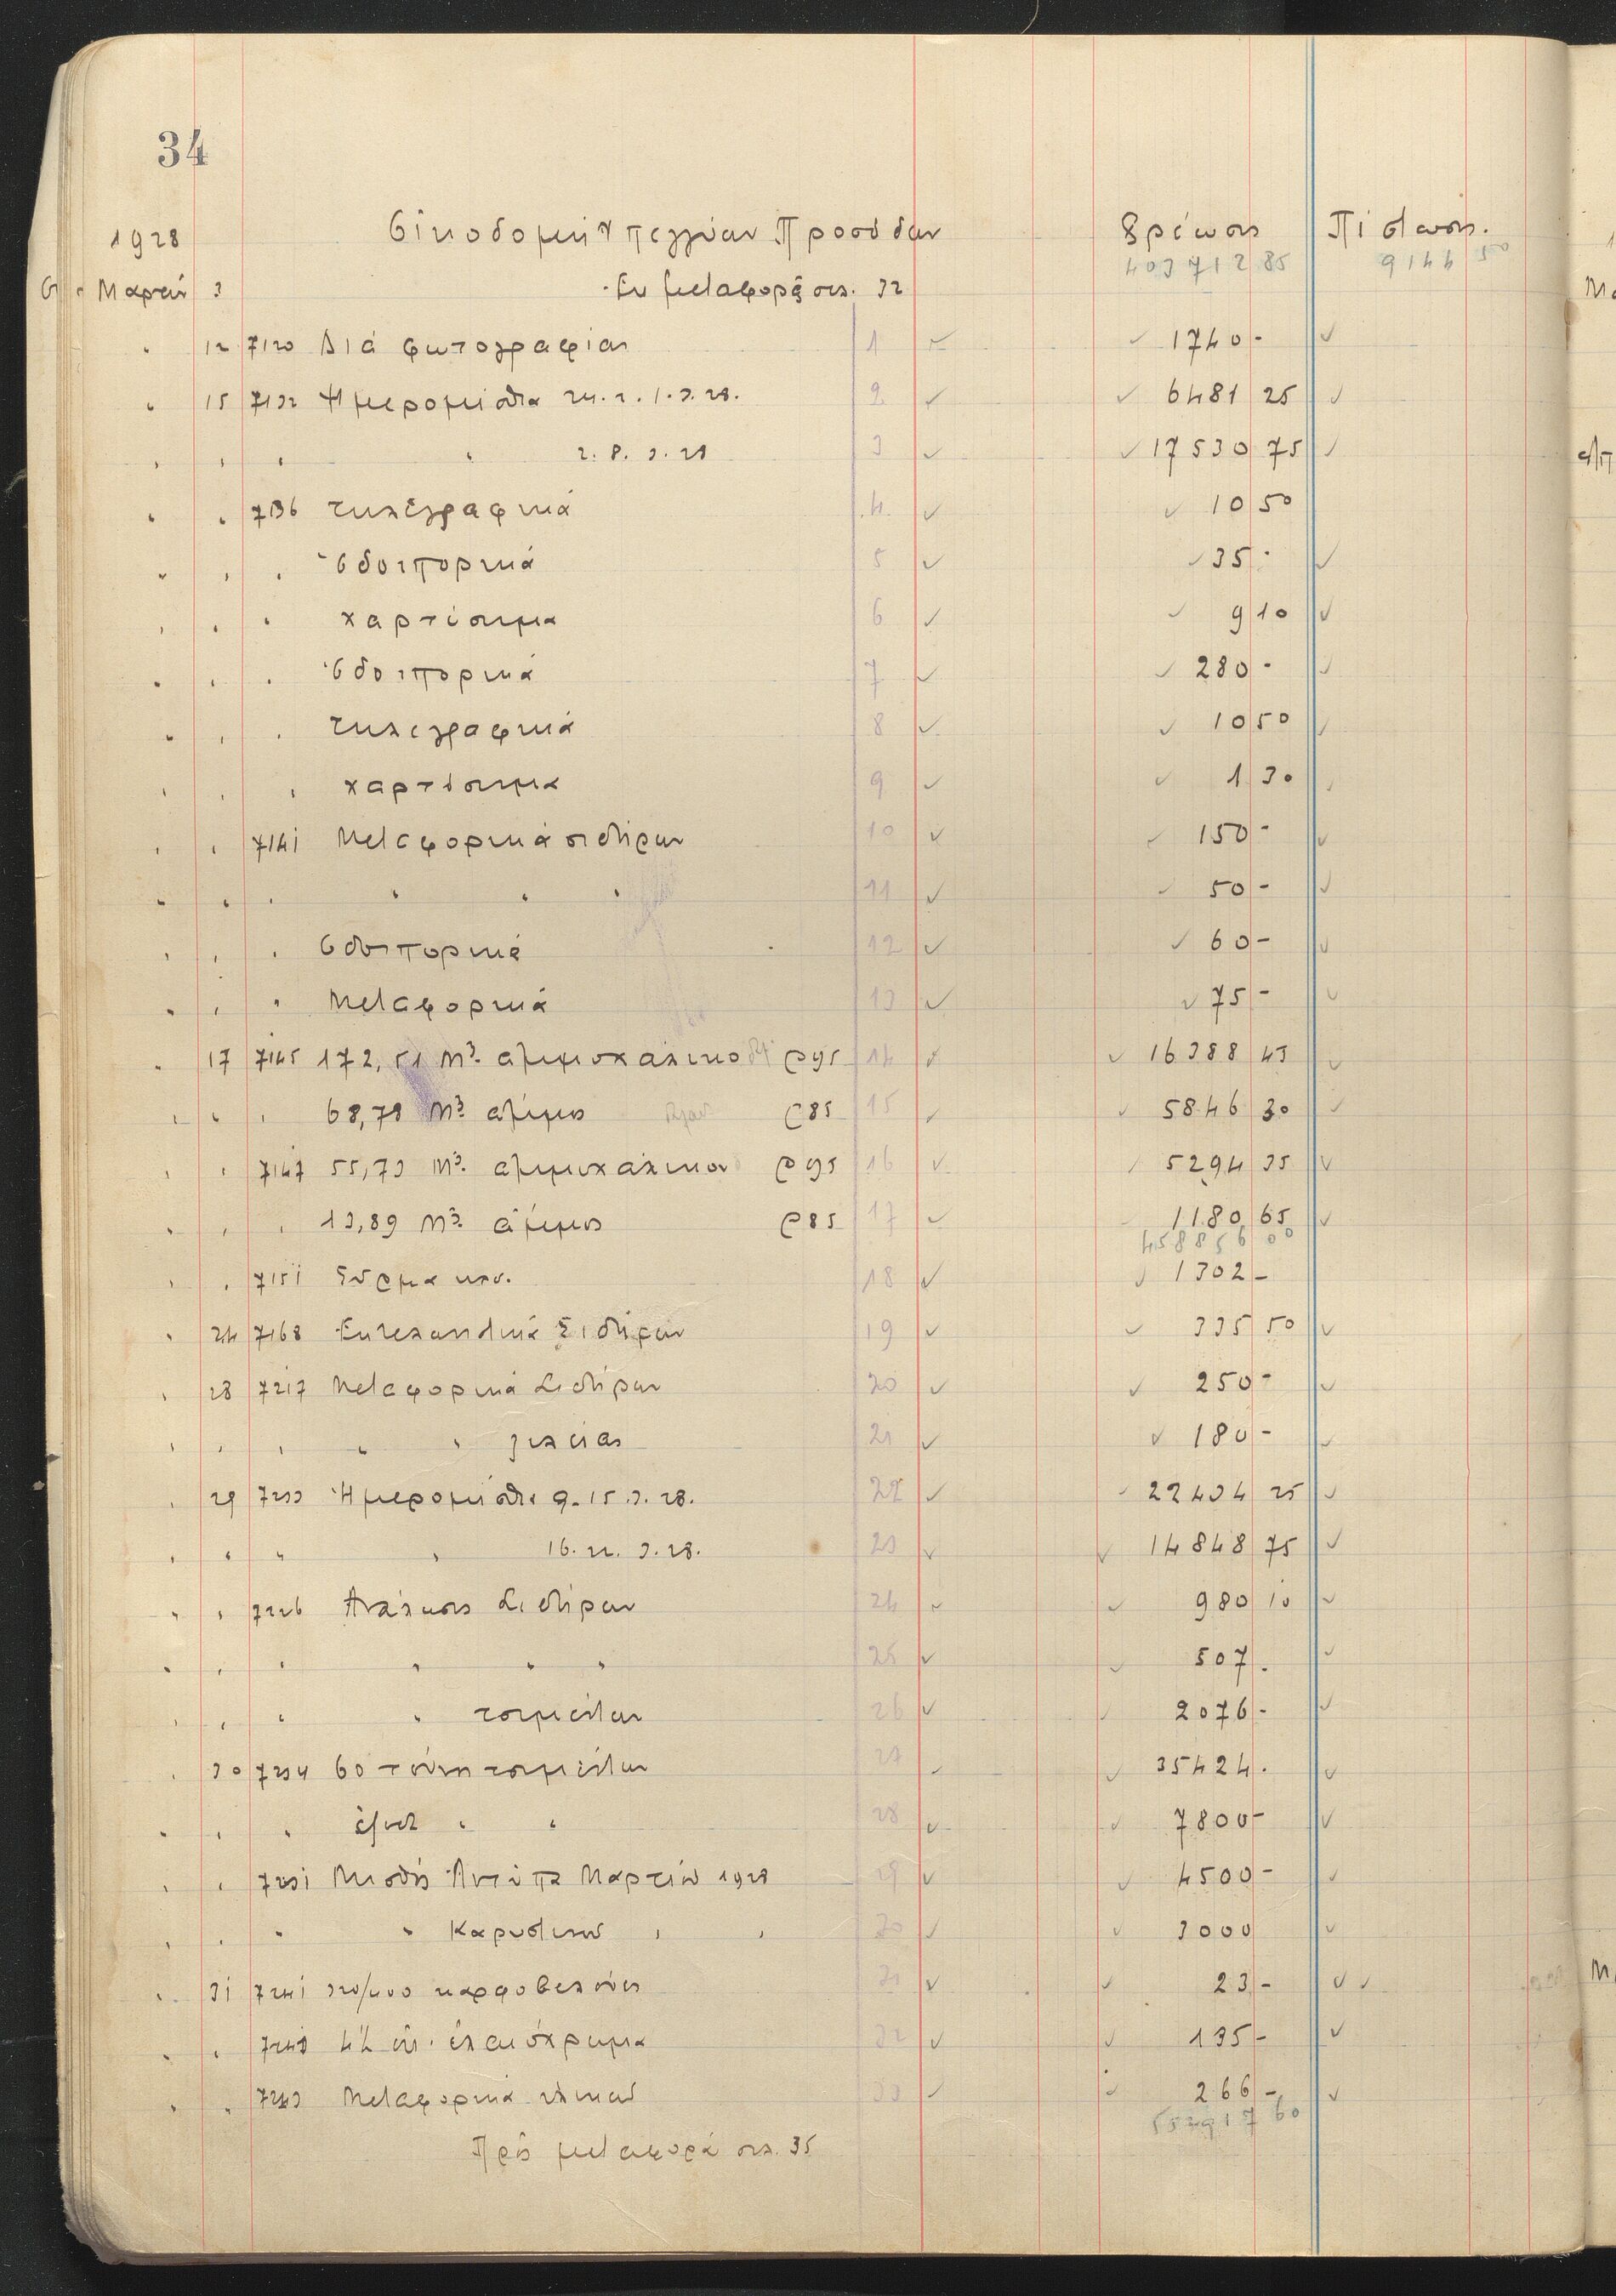 34
1928 Οἰκοδομὴ Πρόσοδοι Χρέωσις Πίστωσις.
403712 85 9144 50
Μαρτίου 3 Ἐκ μεταφορᾶς σελ. 32
" 12 7120 Διὰ φωτογραφίαν 1 1740 -
" 15 7132 Ἡμερομίσθια 24.2. 1.3.28. 2 6481 25
" " " " 2. 8. 3. 28 3 17530 75
" " 7136 τηλεγραφικά 4 10 50
" " " Ὁδοιπορικά 5 35 -
" " " χαρτόσημα 6 9 10
" " " Ὁδοιπορικά 7 280 -
" " " τηλεγραφικά 8 10 50
" " " χαρτόσημα 9 1 30
" " 7141 Μεταφορικά σιδήρων 10 150 -
" " " " " " 11 50 -
" " " Ὁδοιπορικά 12 60 -
" " " Μεταφορικά 13 75 -
" 17 7145 172,51 Μ3. αμμοχάλικο @95 14 16388 45
" " " 68,78 Μ3 άμμος @85 15 5846 30
" " 7147 55,73 Μ3. αμμοχάλικον @95 16 5294 35
" " " 13,89 Μ3. άμμος @85 17 1180 65
458856 00
" " 7151 Σύρμα κλπ. 18 1302 -
" 24 7168 Ἐκτελωνιστικά Σιδήρων 19 335 50
" 28 7217 Μεταφορικά Σιδήρων 20 250 -
" " " " " 21 180 -
" 29 7233 Ἡμερομίσθια 9-15.3.28. 22 22434 25
" " " " 16. 22. 3.28. 23 14848 75
" " 7226 Ἀνάλυσις Σιδήρων 24 980 10
" " " " " " 25 507 .
" " " " τσιμέντων 26 2076 -
" 30 7234 60 τόννοι τσιμέντων 27 35424 .
" " " ἔξοδα " " 28 7800 -
" " 7231 Μισθὸς Ἀντύπα Μαρτίου 1928 29 4500 -
" " " " Καρυστινοῦ " " 30 3000
" 31 7241 καρφοβελόνες 31 23 -
" " ἐλαιόχρωμα 32 135 -
" " 7243 Μεταφορικά ὑλικῶν 33 266 -
Πρὸς μεταφορά σελ. 35